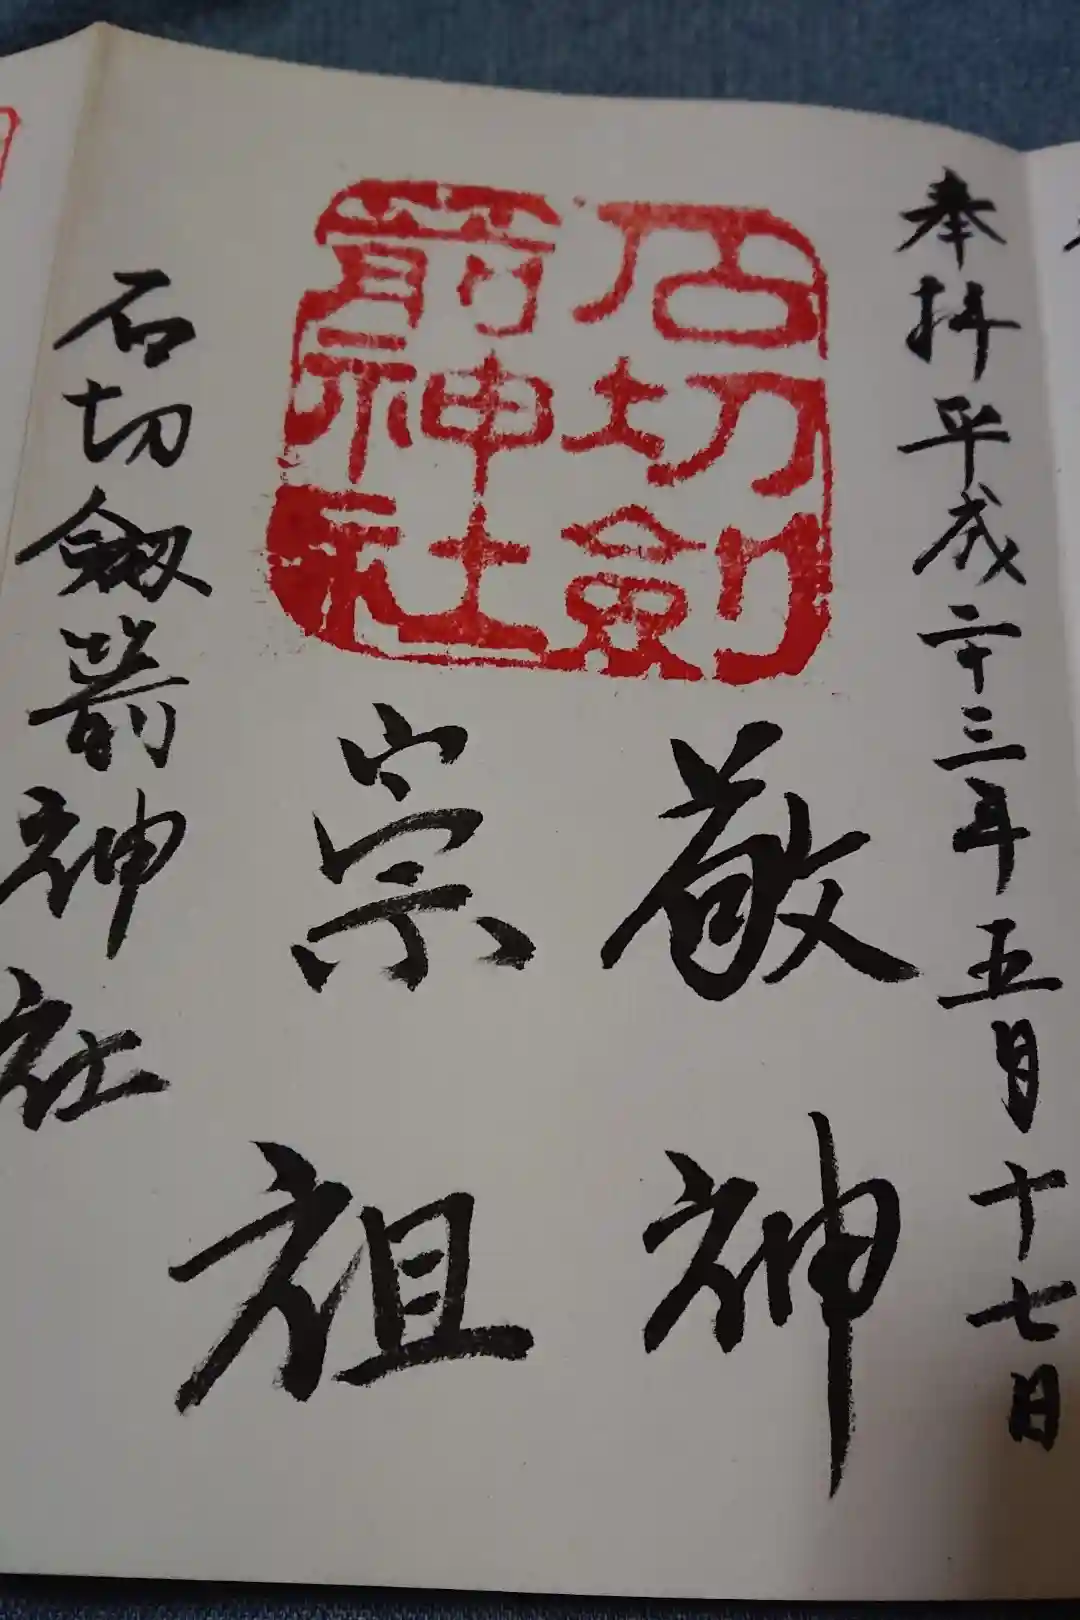 奉拝平成二十三年五月十七日
石切剣
箭神社
敬神
崇祖
石切劔箭神社